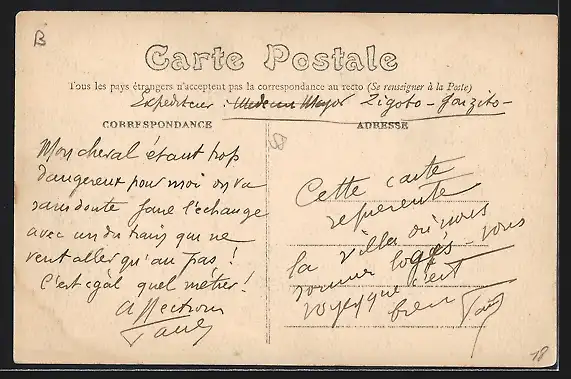 B
Carte Postale
Tous les pays étrangers n'acceptent pas la correspondance au recto (Se renseigner à la Poste)
Expéditeur Médecin Major Zigoto - Gonzito -
CORRESPONDANCE
ADRESSE
Mon cheval étant trop
dangereux pour moi on va
sans doute faire l'échange
avec un du train qui ne
veut aller qu'au pas !
C'est égal quel métier !
Affection
Paul
Cette carte
représente
la villa où nous
sommes logés - vous
voyez que c'est
bien Paul
18